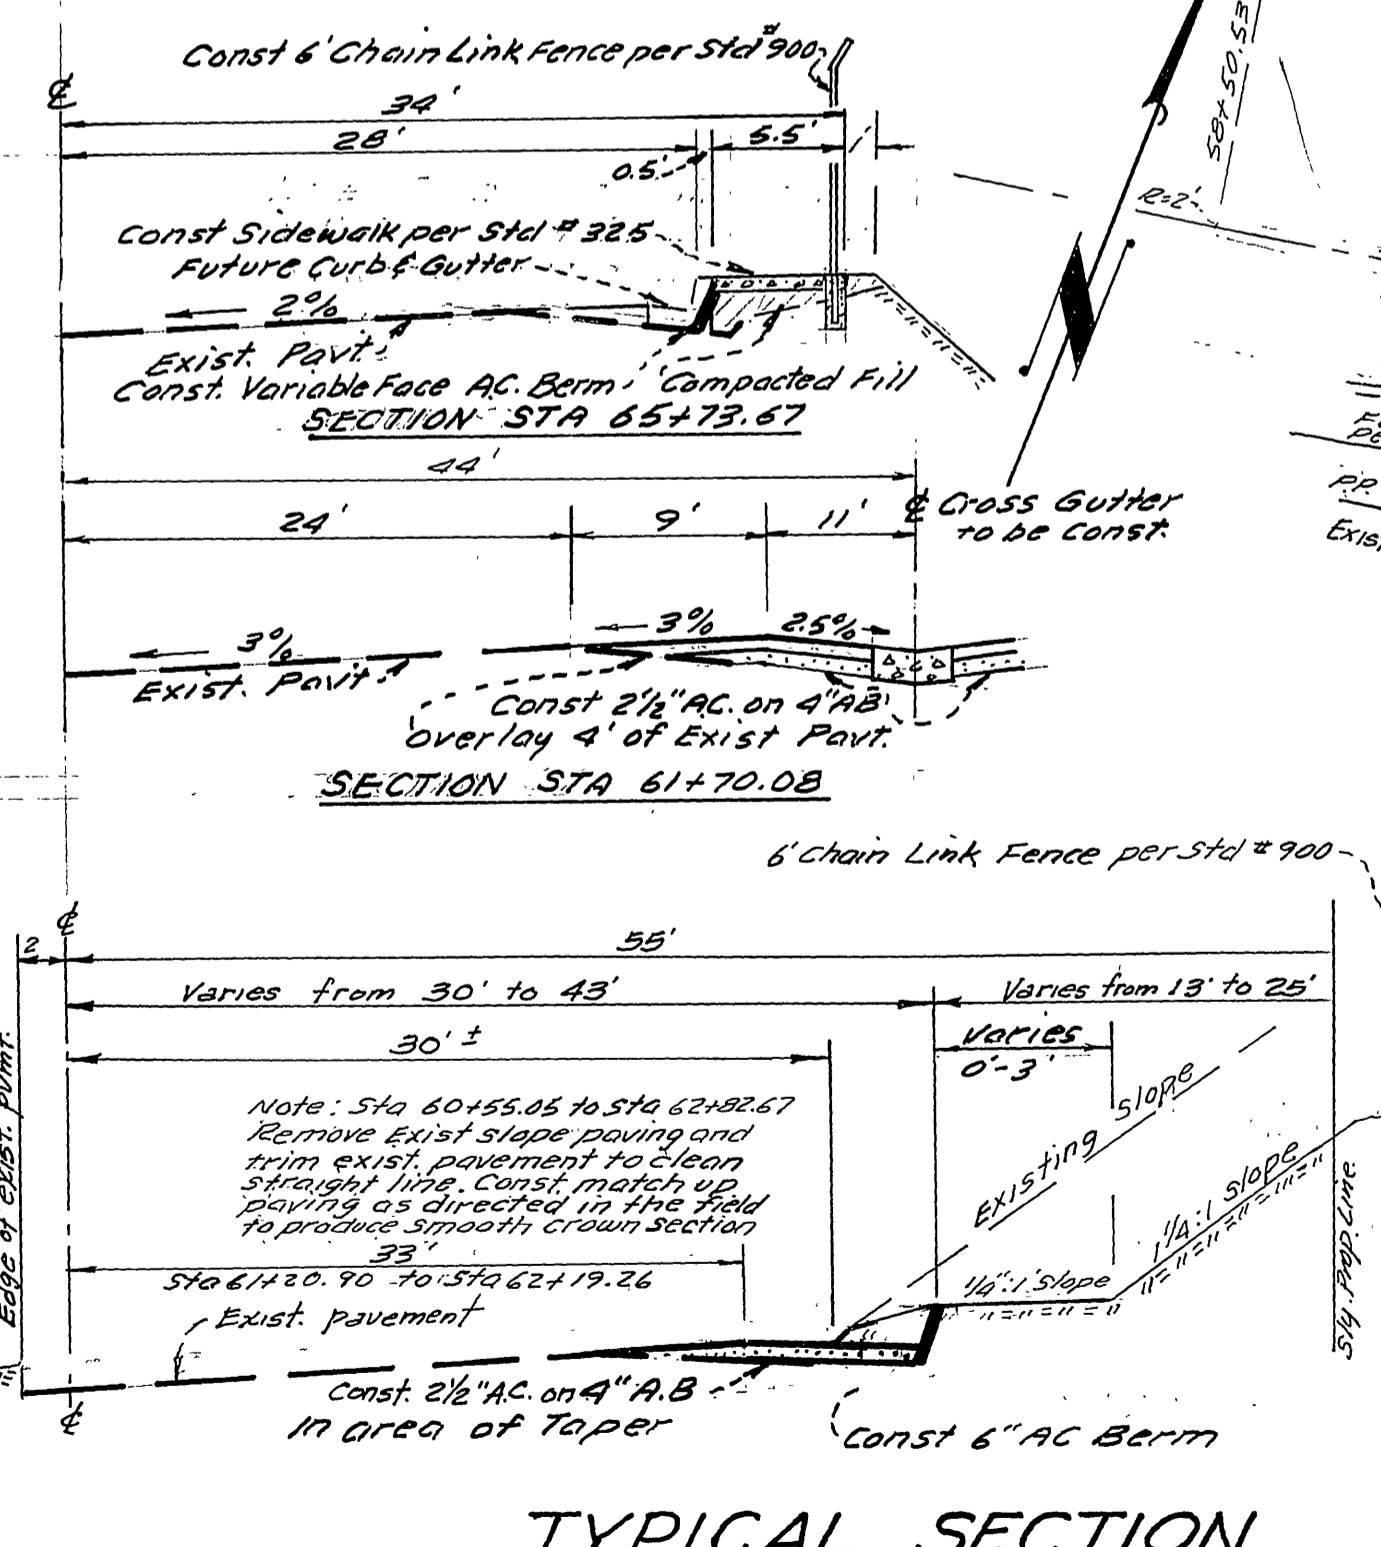 Const 6' Chain Link Fence per Std #900
℄
34'
28'
5.5'
0.5'
1'
58+50.53
R=2'
Const Sidewalk per Std # 325
Future Curb & Gutter
2%
Exist. Pavt.
Const. Variable Face A.C. Berm
Compacted Fill
SECTION STA 65+73.67
44'
24'
9'
11'
℄ Cross Gutter
to be Const.
P.P.
3%
3%
2.5%
Exist. Pavt.
Const 2½" A.C. on 4" AB
Overlay 4' of Exist Pavt.
SECTION STA 61+70.08
6' Chain Link Fence per Std #900
℄
2
55'
Varies from 30' to 43'
Varies from 13' to 25'
30' ±
Varies
0'-3'
Edge of exist. pvmt.
Note: Sta 60+55.05 to Sta 62+82.67
Remove Exist slope paving and
trim exist. pavement to clean
straight line. Const. match up
paving as directed in the field
to produce smooth crown section
33'
Sta 61+20.90 to Sta 62+19.26
Existing Slope
1¼:1 Slope
¼":1' Slope
Sly. Prop. Line
Exist. pavement
Const. 2½" A.C. on 4" A.B
In area of Taper
℄
Const 6" AC Berm
TYPICAL SECTION